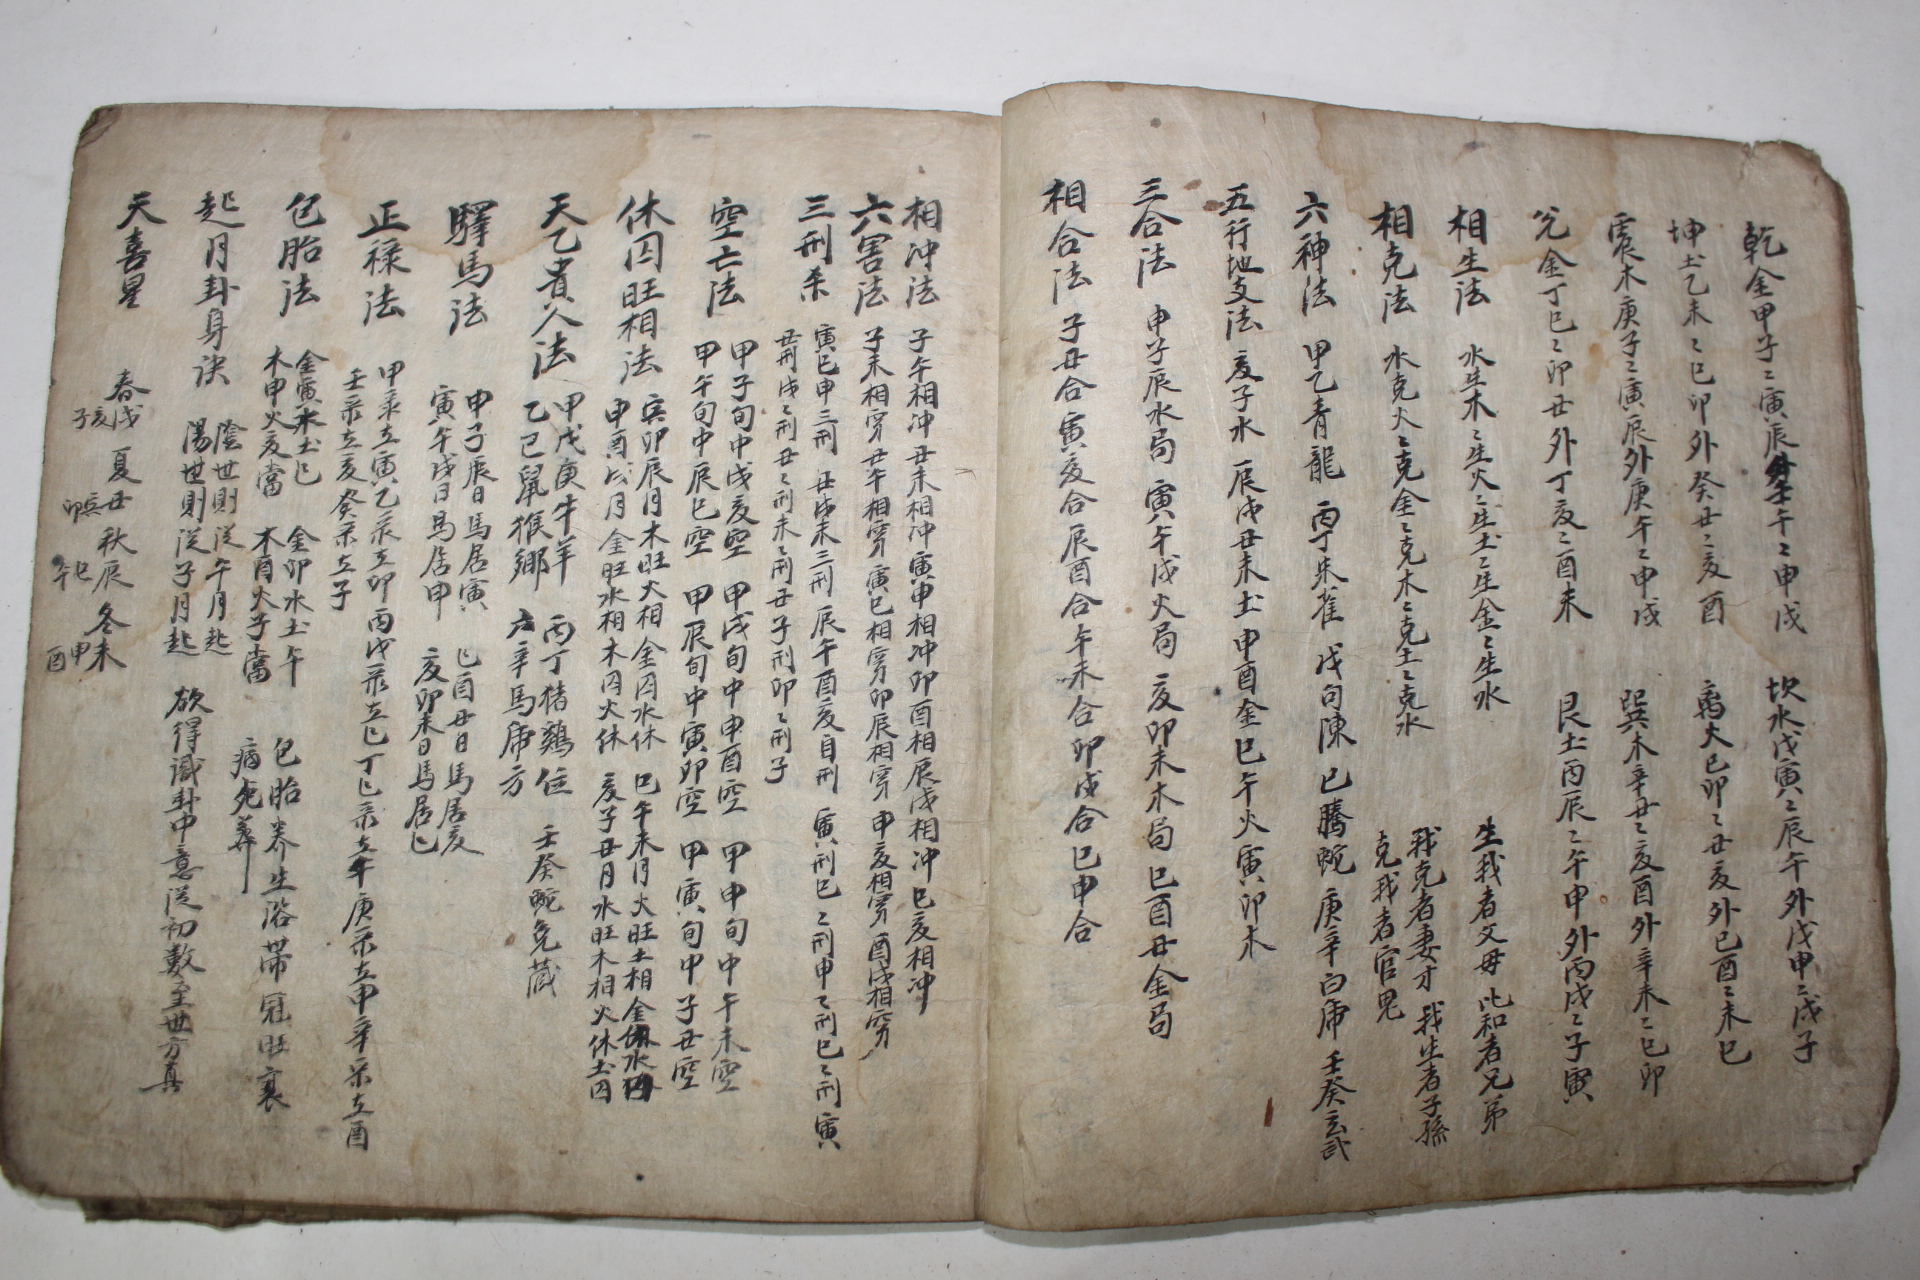 乾金甲子〻寅辰外壬午〻申戌　坎水戊寅〻辰午外戊申〻戌子
坤土乙未〻巳卯外癸丑〻亥酉　离火己卯〻丑亥外己酉〻未巳
震木庚子〻寅辰外庚午〻申戌　巽木辛丑〻亥酉外辛未〻巳卯
兌金丁巳〻卯丑外丁亥〻酉未　艮土丙辰〻午申外丙戌〻子寅
相生法　水生木〻生火〻生土〻生金〻生水　生我者父母　比和者兄弟
相克法　水克火〻克金〻克木〻克土〻克水　我克者妻才　我生者子孫
克我者官鬼
六神法　甲乙青龍　丙丁朱雀　戊句陳　己騰蛇　庚辛白虎　壬癸玄武
五行地支法　亥子水　辰戌丑未土　申酉金　巳午火　寅卯木
三合法　申子辰水局　寅午戌火局　亥卯未木局　巳酉丑金局
相合法　子丑合　寅亥合　辰酉合　午未合　卯戌合　巳申合
相冲法　子午相冲　丑未相冲　寅申相冲　卯酉相　辰戌相冲　巳亥相冲
六害法　子未相穿　丑午相穿　寅巳相穿　卯辰相穿　申亥相穿　酉戌相穿
三刑杀　寅巳申三刑　丑戌未三刑　辰午酉亥自刑　寅刑巳〻刑申〻刑巳〻刑寅
丑刑戌〻刑丑〻刑未〻刑丑　子刑卯〻刑子
空亡法　甲子旬中戌亥空　甲戌旬中申酉空　甲申旬中午未空
甲午旬中辰巳空　甲辰旬中寅卯空　甲寅旬中子丑空
休囚旺相法　寅卯辰月木旺火相金囚水休　巳午未月火旺土相金休水囚
申酉戌月金旺水相木囚火休　亥子丑月水旺木相火休土囚
天乙貴人法　甲戊庚牛羊　丙丁猪鷄位　壬癸蛇兔藏
乙己鼠猴鄉　六辛馬虎方
驛馬法　申子辰日馬居寅　巳酉丑日馬居亥
寅午戌日馬居申　亥卯未日馬居巳
正祿法　甲彔立寅　乙彔立卯　丙戊彔立巳　丁己彔立午　庚彔立申　辛彔立酉
壬彔立亥　癸彔立子
包胎法　金寅水土巳　金卯水土午　包胎养生浴帶冠旺衰
木申火亥當　木酉火子當　病死葬
起月卦身訣　陰世則從午月起
陽世則從子月起　欲得識卦中意從初數至世方真
天喜星　春戌　夏丑　秋辰　冬未
亥子　寅卯　巳午　申酉